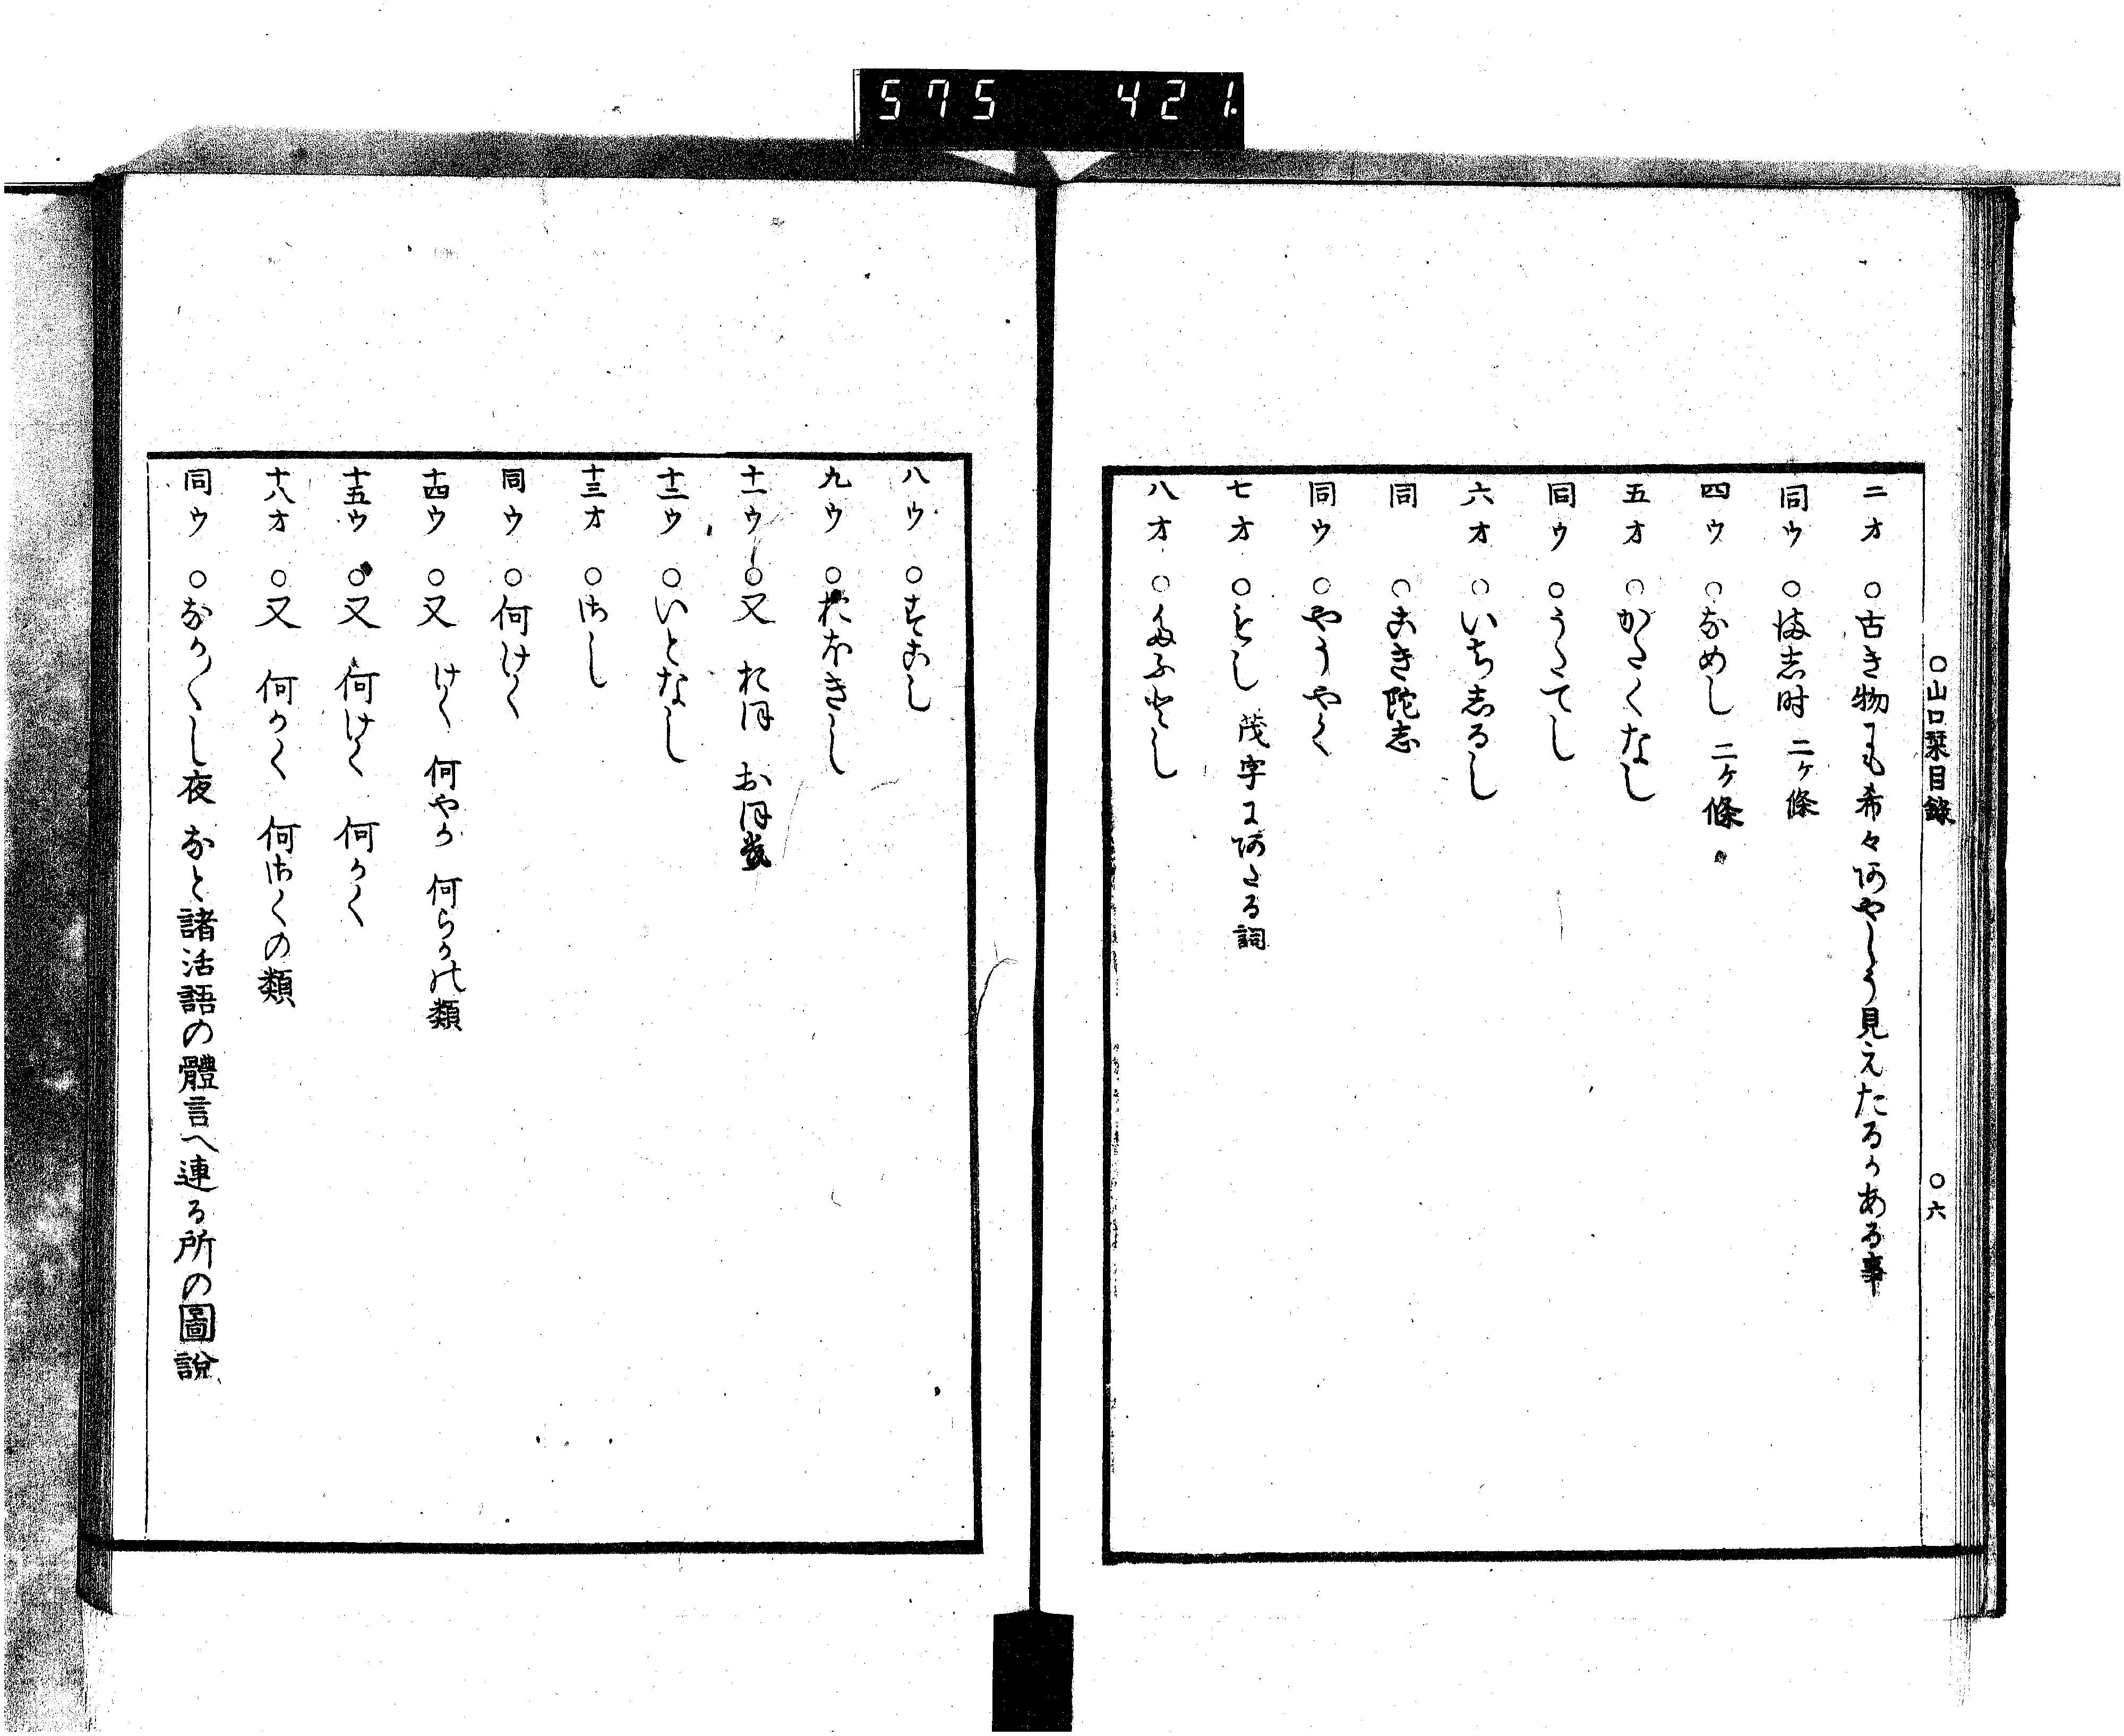 575 421.
○山口栞目録 ○六
二オ ○古き物にも希々あやしう見えたるかある事
同ウ ○ほし时 二ヶ條
四ウ ○なめし 二ヶ條
五オ ○かたくなし
同ウ ○うたてし
六オ ○いちしるし
同 ○あきたし
同ウ ○やうやく
七オ ○をし 茂字にあたる詞
八オ
八ウ ○すあし
九ウ ○おほきし
十一ウ ○又 おほ おほ
十二ウ ○いとなし
十三オ ○はし
同ウ ○何けく
十四ウ ○又 けく 何やか 何らかの類
十五ウ ○又 何けく 何かく
十八オ ○又 何かく 何はくの類
同ウ ○なか〳〵し夜 なと諸活語の體言へ連る所の圖說